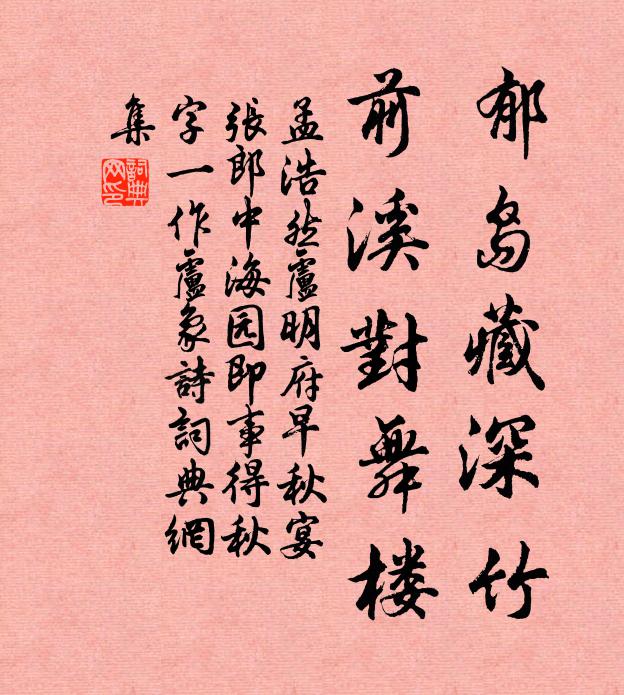 郁岛藏深竹
前溪對舞楼
孟浩然盧明府早秋宴
張郎中海园即事得秋
字一作盧象詩詞典網
集
詞典网印